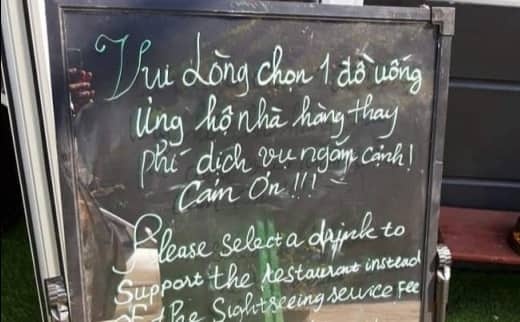 Vui Lòng chọn 1 đồ uống
ủng hộ nhà hàng thay
phí dịch vụ ngắm cảnh!
Cám Ơn!!!
Please Select a drink to
Support the restaurant instead
of the Sightseeing service Fee